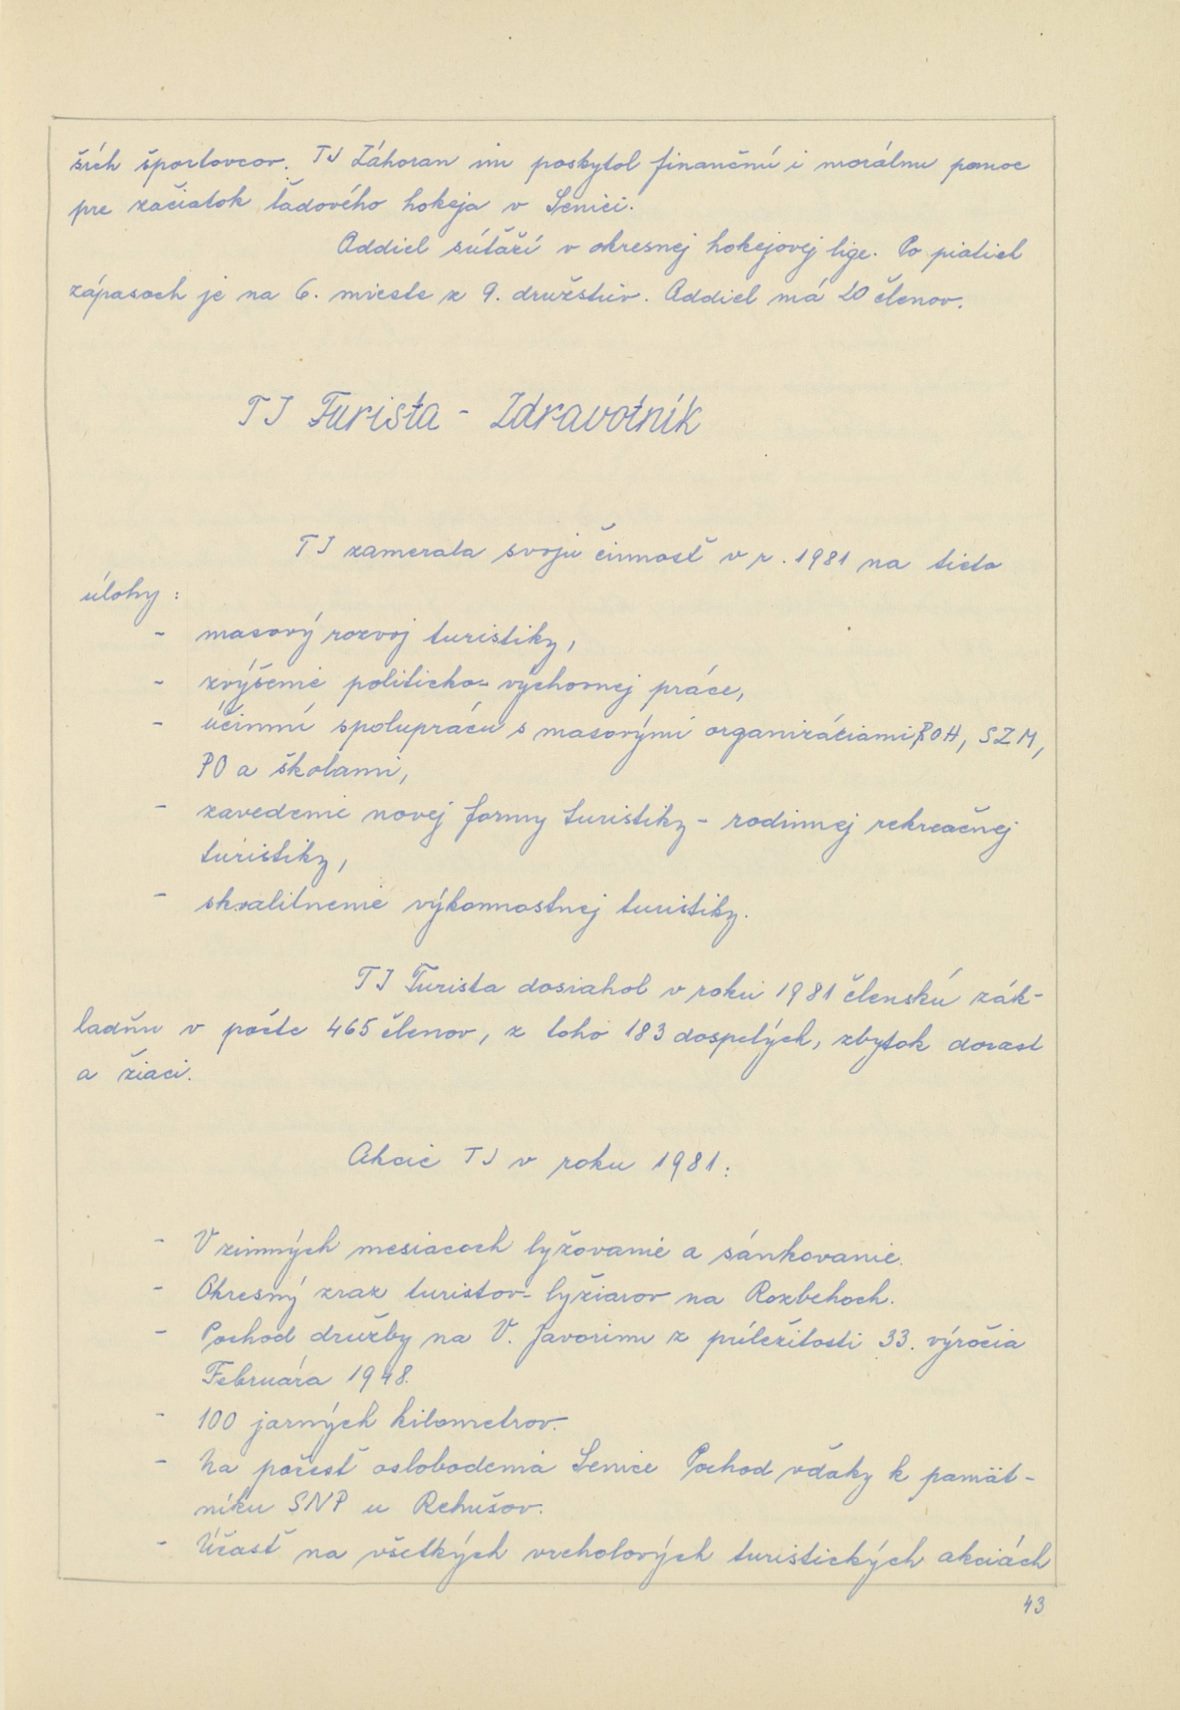 ších športovcov. TJ Záhoran im poskytol finančnú i morálnu pomoc
pre začiatok ľadového hokeja v Senici.
Oddiel súťaží v okresnej hokejovej lige. Po piatich
zápasoch je na 6. mieste z 9. družstiev. Oddiel má 20 členov.
TJ Turista - Zdravotník
TJ zamerala svoju činnosť v r. 1981 na tieto
úlohy :
- masový rozvoj turistiky,
- zvýšenie politicko- výchovnej práce,
- účinnú spoluprácu s masovými organizáciami, ROH, SZM,
PO a školami,
- zavedenie novej formy turistiky - rodinnej rekreačnej
turistiky,
- skvalitnenie výkonnostnej turistiky.
TJ Turista dosiahol v roku 1981 členskú zák-
ladňu v počte 465 členov, z toho 183 dospelých, zbytok dorast
a žiaci.
Akcie TJ v roku 1981:
- V zimných mesiacoch lyžovanie a sánkovanie.
- Okresný zraz turistov- lyžiarov na Rozbehoch.
- Pochod družby na V. Javorinu z príležitosti 33. výročia
Februára 1948.
- 100 jarných kilometrov.
- Na počesť oslobodenia Senice Pochod vďaky k pamät-
níku SNP u Rehušov.
- Účasť na všetkých vrcholových turistických akciách
43